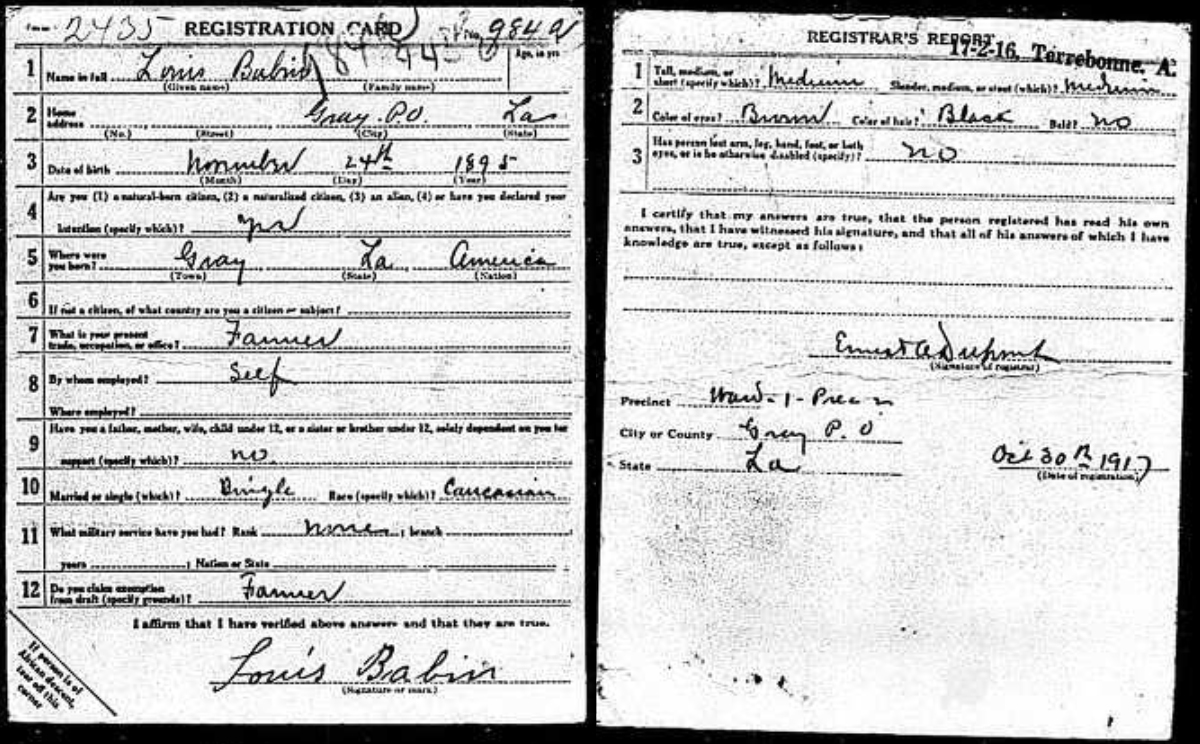 Form 2435 REGISTRATION CARD No. 984 A
Age, in yrs
1 Name in full Louis Babin
(Given name) (Family name)
2 Home address Gray P.O. La
(No.) (Street) (City) (State)
3 Date of birth November 24th 1895
(Month) (Day) (Year)
4 Are you (1) a natural-born citizen, (2) a naturalized citizen, (3) an alien, (4) or have you declared your
intention (specify which)? yes
5 Where were you born? Gray La America
(Town) (State) (Nation)
6 If not a citizen, of what country are you a citizen or subject?
7 What is your present trade, occupation, or office? Farmer
8 By whom employed? Self
Where employed?
9 Have you a father, mother, wife, child under 12, or a sister or brother under 12, solely dependent on you for
support (specify which)? no.
10 Married or single (which)? Single Race (specify which)? Caucasian
11 What military service have you had? Rank none ; branch
years ; Nation or State
12 Do you claim exemption from draft (specify grounds)? Farmer
I affirm that I have verified above answers and that they are true.
Louis Babin
(Signature or mark)
If person is of
African descent,
tear off this
corner
REGISTRAR'S REPORT
17-2-16, Terrebonne. A.
1 Tall, medium, or short (specify which)? Medium Slender, medium, or stout (which)? Medium
2 Color of eyes? Brown Color of hair? Black Bald? no
3 Has person lost arm, leg, hand, foot, or both eyes, or is he otherwise disabled (specify)? no
I certify that my answers are true, that the person registered has read his own
answers, that I have witnessed his signature, and that all of his answers of which I have
knowledge are true, except as follows:
Ernest A Dupont
(Signature of registrar)
Precinct Ward - 1 - Prec
City or County Gray P. O
State La
Oct 30th 1917
(Date of registration)